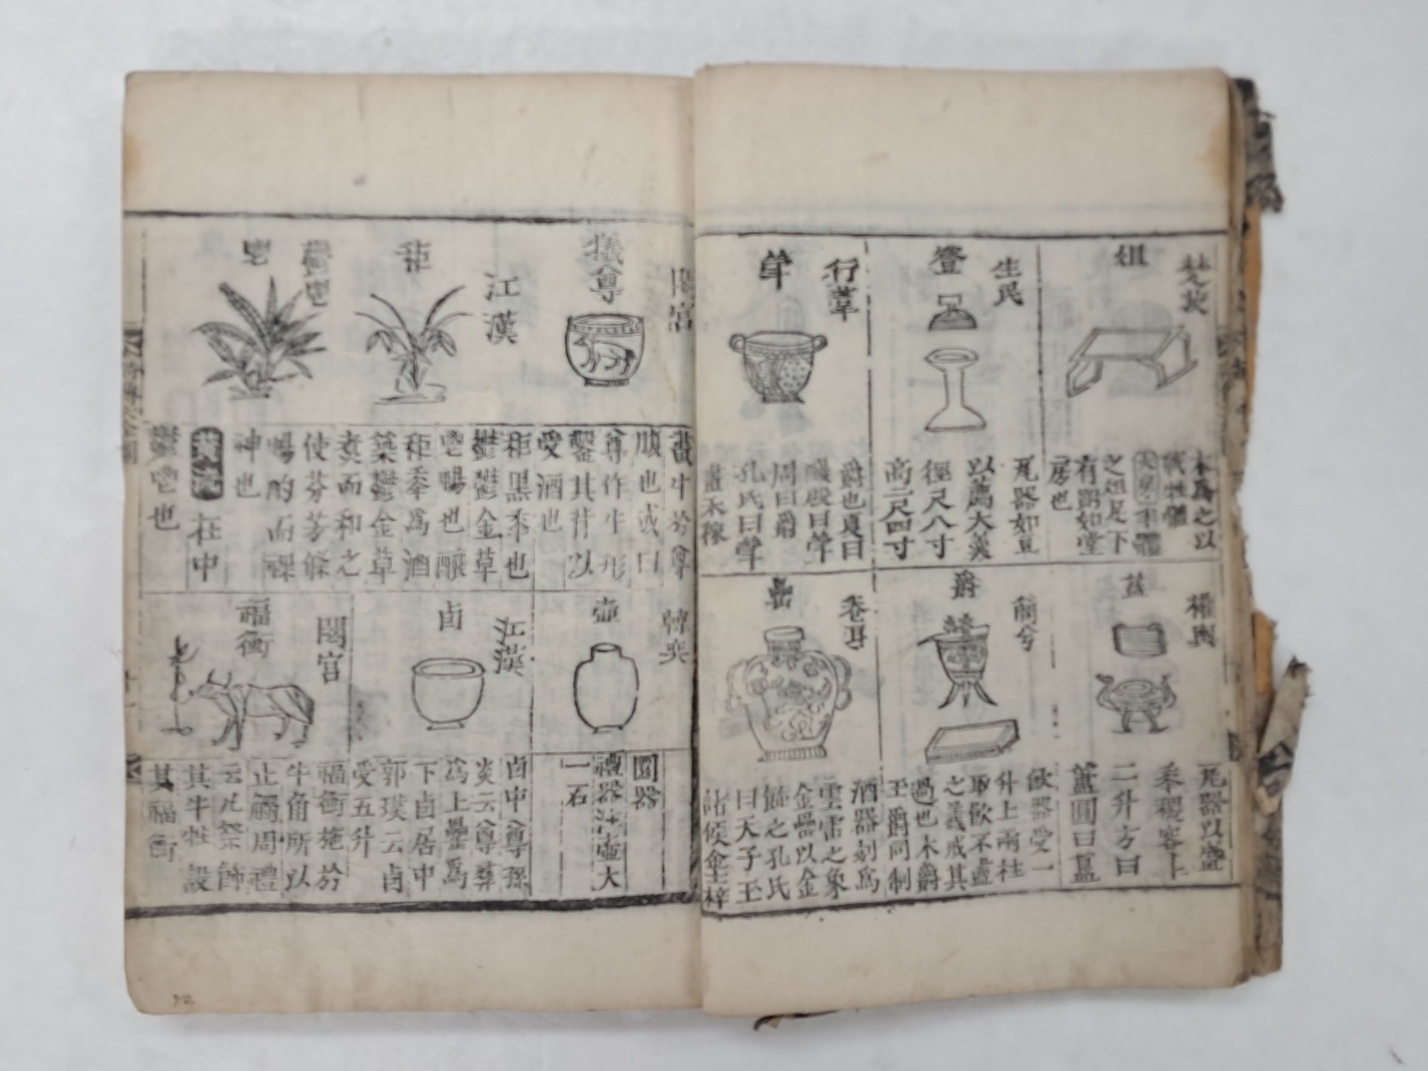 楚茨
俎
木為之以
載牲體
大房半體
之俎足下
有跗如堂
房也
生民
登
瓦器如豆
以薦大羹
徑尺八寸
高二尺四寸
行葦
斝
爵也夏曰
醆殷曰斝
周曰爵
孔氏曰斝
畫禾稼
權輿
簋
瓦器以盛
黍稷容
二升方曰
簠圓曰簋
簡兮
爵
飲器受一
升上兩柱
取飲不盡
之義戒其
過也木爵
玉爵同制
卷耳
罍
酒器刻為
雲雷之象
金罍以金
飾之孔氏
曰天子玉
諸侯金士梓
閟宮
犧尊
畫牛於尊
腹也或曰
尊作牛形
鑿其背以
受酒也
江漢
秬
秬黑黍也
鬱鬯
鬯
鬱鬱金草
鬯暢也釀
秬黍為酒
築鬱金草
煮而和之
使芬芳條
暢酌而祼
神也
黃流
在中
鬱鬯也
韓奕
壺
圓器
禮器注壺大
一石
江漢
卣
卣中尊孫
炎云尊彝
為上罍為
下卣居中
郭璞云卣
受五升
閟宮
福衡
福衡施於
牛角所以
止觸周禮
云凡祭飾
其牛牲設
其福衡